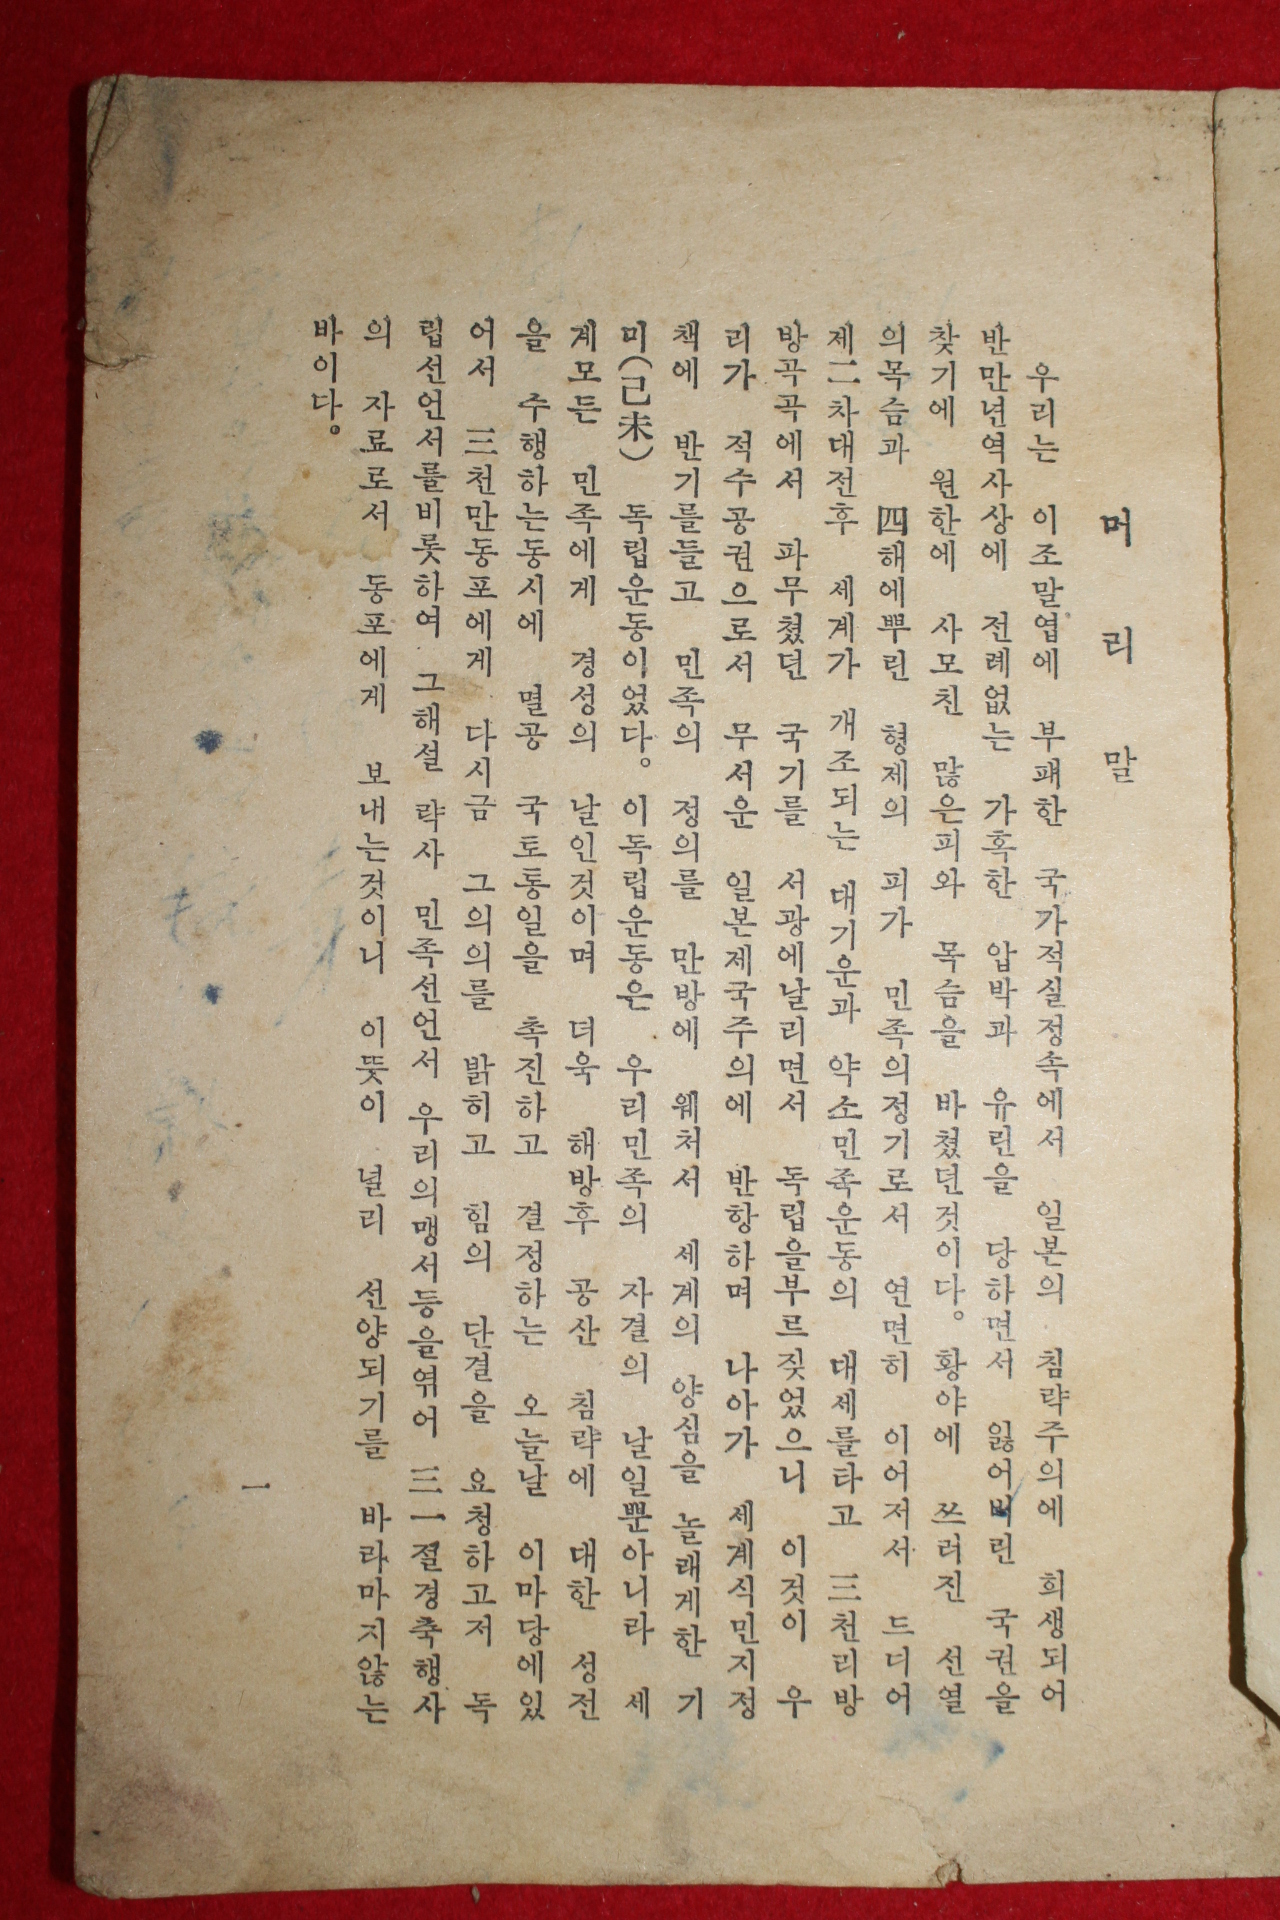 머리말
우리는 이조말엽에 부패한 국가적실정속에서 일본의 침략주의에 희생되어
반만년역사상에 전례없는 가혹한 압박과 유린을 당하면서 잃어버린 국권을
찾기에 원한에 사모친 많은피와 목숨을 바쳤던것이다。황야에 쓰러진 선열
의목숨과 四해에뿌린 형제의 피가 민족의정기로서 연면히 이어저서 드디어
제二차대전후 세계가 개조되는 대기운과 약소민족운동의 대세를타고 三천리방
방곡곡에서 파무쳤던 국기를 서광에날리면서 독립을부르짖었으니 이것이 우
리가 적수공권으로서 무서운 일본제국주의에 반항하며 나아가 세계식민지정
책에 반기를들고 민족의 정의를 만방에 웨처서 세계의 양심을 놀래게한 기
미(己未) 독립운동이었다。이독립운동은 우리민족의 자결의 날일뿐아니라 세
계모든 민족에게 경성의 날인것이며 더욱 해방후 공산 침략에 대한 성전
을 수행하는동시에 멸공 국토통일을 촉진하고 결정하는 오늘날 이마당에있
어서 三천만동포에게 다시금 그의의를 밝히고 힘의 단결을 요청하고저 독
립선언서를비롯하여 그해설 략사 민족선언서 우리의맹서등을엮어 三一절경축행사
의 자료로서 동포에게 보내는것이니 이뜻이 널리 선양되기를 바라마지않는
바이다。
一